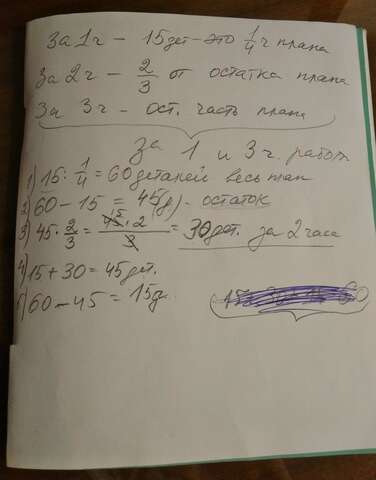 За 1ч – 15 дет – это 1/4 ч плана
За 2ч – 2/3 от остатка плана
За 3ч – ост. часть плана
За 1 и 3ч. работ
1) 15 : 1/4 = 60 деталей весь план
2) 60 – 15 = 45(д) – остаток
3) 45 · 2/3 = 45 · 2 / 3 = 30 дет. за 2 часа
4) 15 + 30 = 45 дет.
5) 60 – 45 = 15 д.